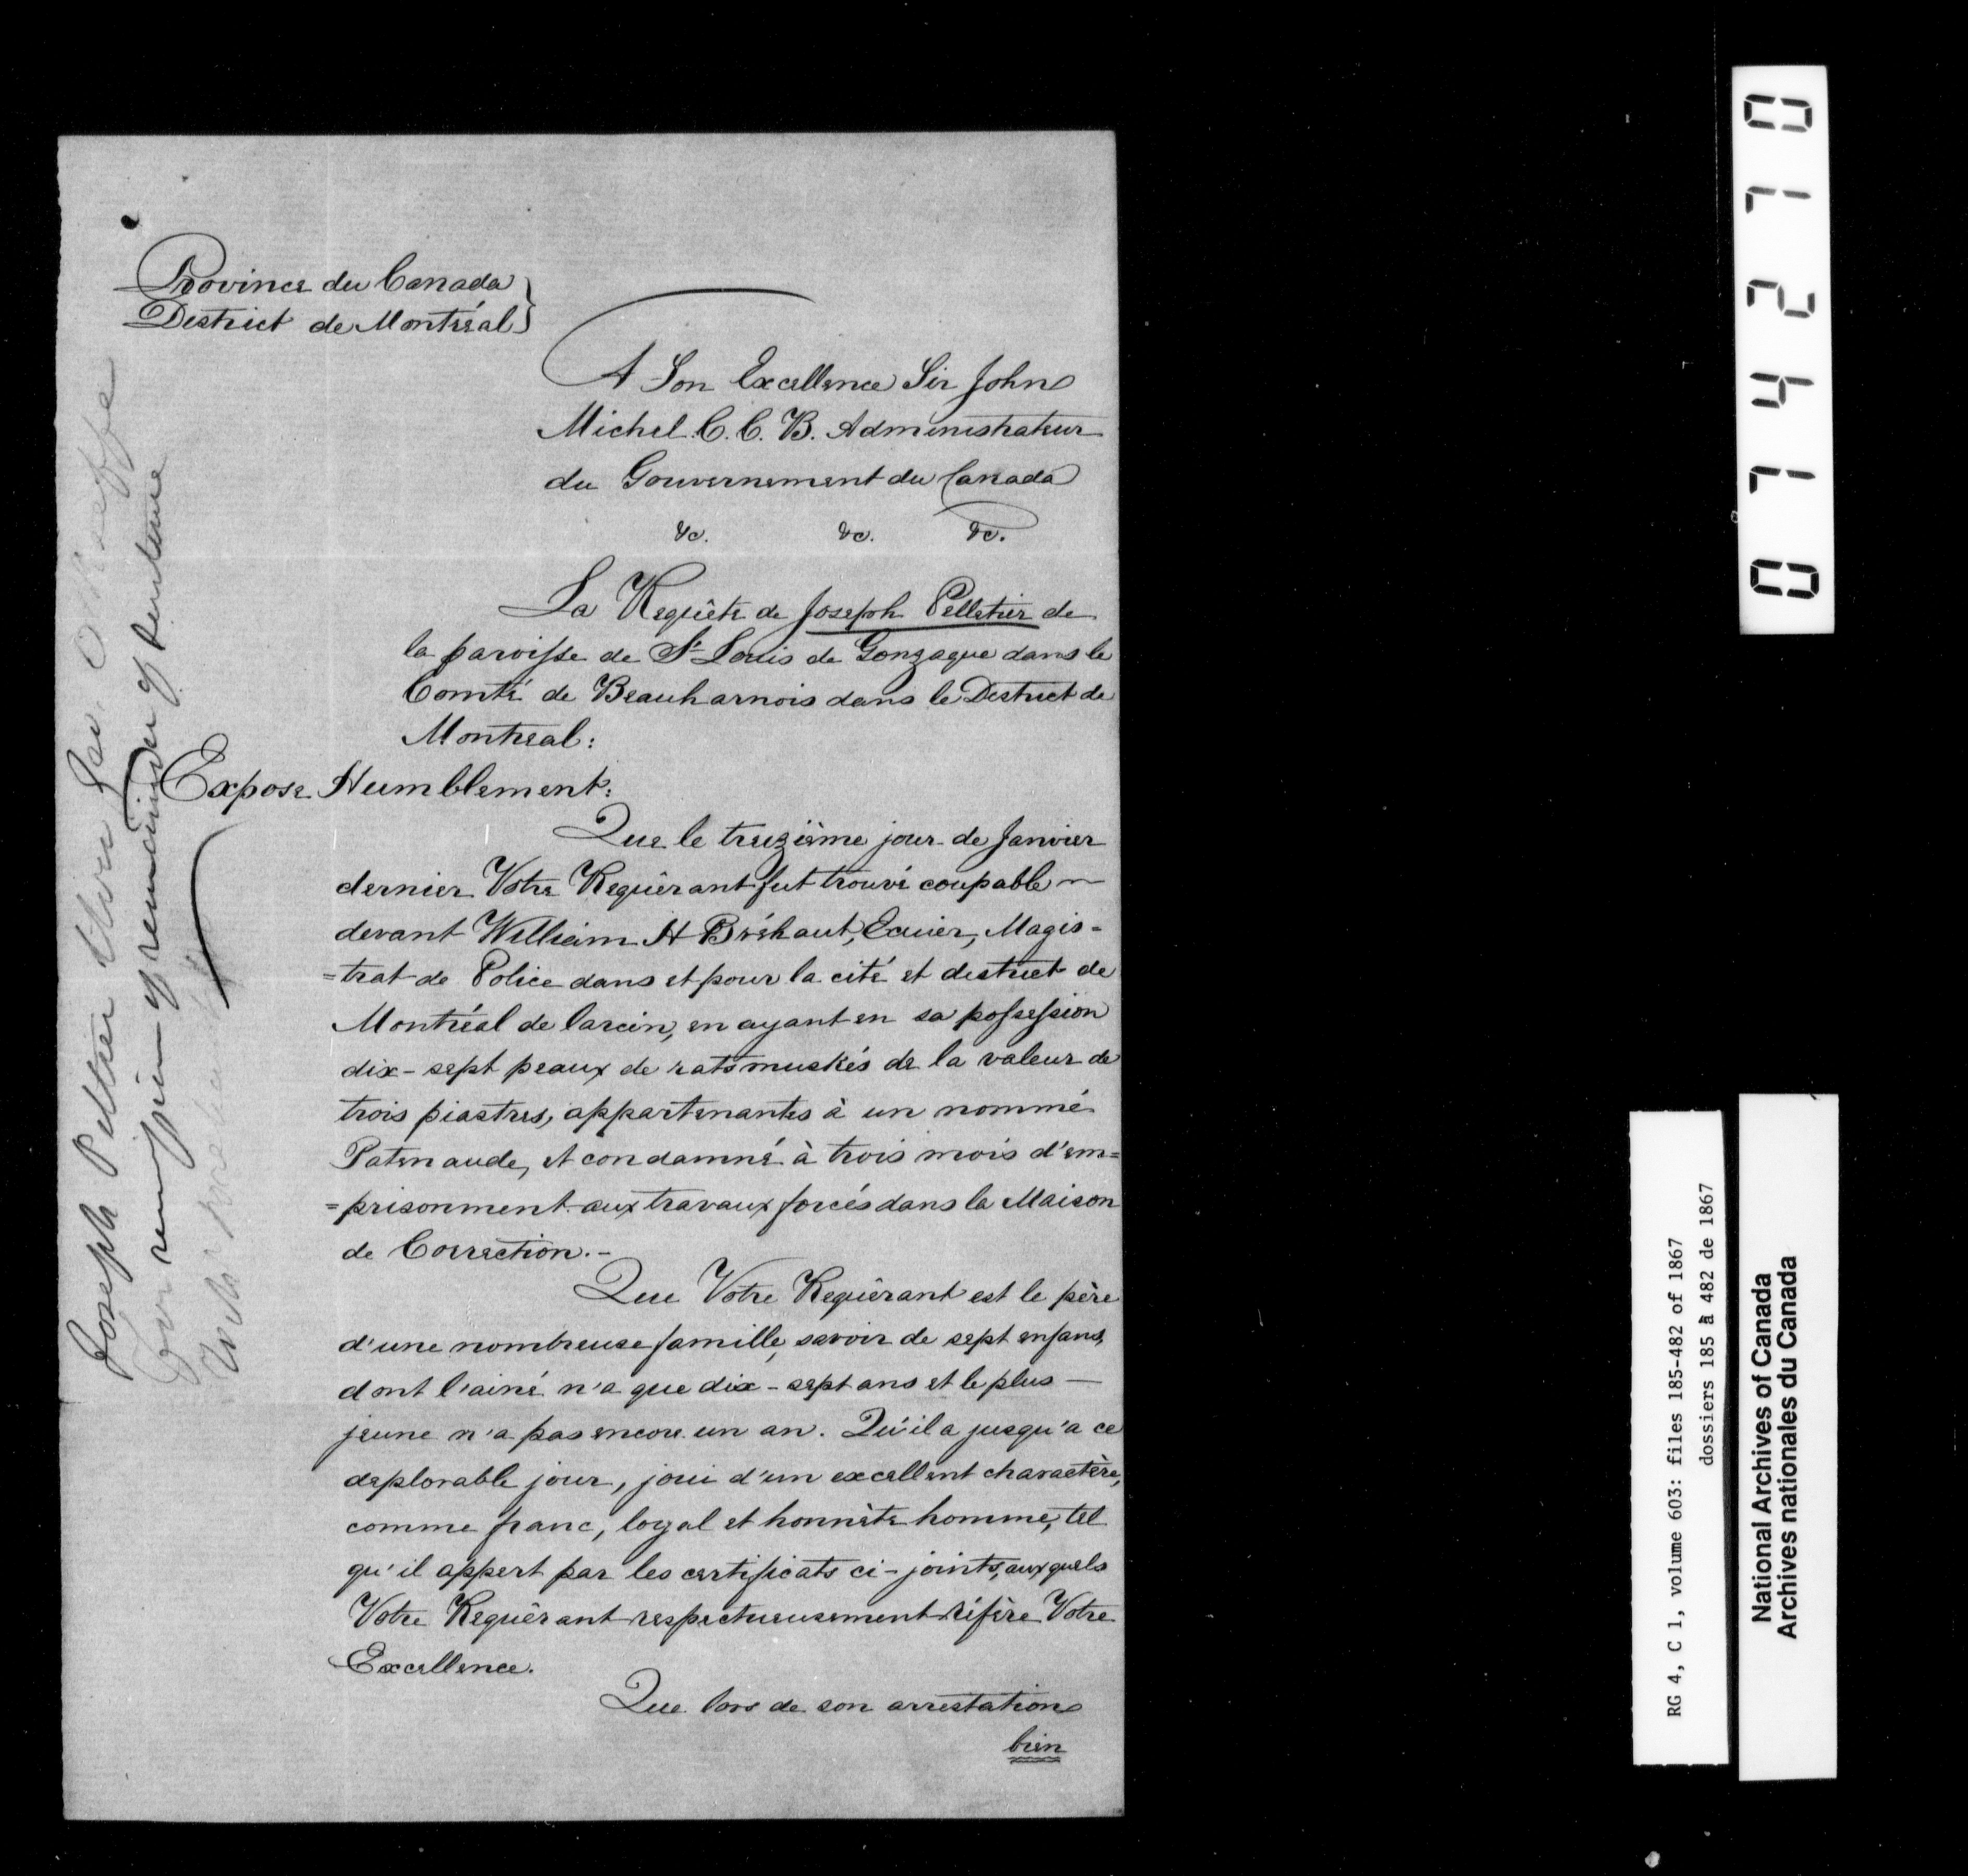 Province du Canada
District de Montréal
A Son Excellence Sir John
Michel C. C. B. Administrateur
du Gouvernement du Canada
&c. &c. &c.
La Requête de Joseph Pelletier de
la paroisse de St Louis de Gonzague dans le
Comté de Beauharnois dans le District de
Montreal:
Expose Humblement:
Que le treizième jour de Janvier
dernier Votre Requérant fut trouvé coupable
devant William H Bréhaut, Ecuier, Magis=
=trat de Police dans et pour la cité et district de
Montréal de larcin, en ayant en sa possession
dix-sept peaux de rats muskés de la valeur de
trois piastres, appartenantes à un nommé
Patenaude, et condamné à trois mois d'em=
=prisonment aux travaux forcés dans la Maison
de Correction.-
Que Votre Requérant est le père
d'une nombreuse famille, savoir de sept enfans,
dont l'ainé n'a que dix-sept ans et le plus
jeune n'a pas encore un an. Qu'il a jusqu'a ce
deplorable jour, joui d'un excellent charactère,
comme franc, loyal et honnête homme, tel
qu'il appert par les certificats ci-joints, auxquels
Votre Requérant respectueusement réfère Votre
Excellence.
Que lors de son arrestation
bien
Joseph Pelltier
For remission of remainder of Sentence
074270
RG 4, C 1, volume 603: files 185-482 of 1867
dossiers 185 à 482 de 1867
National Archives of Canada
Archives nationales du Canada